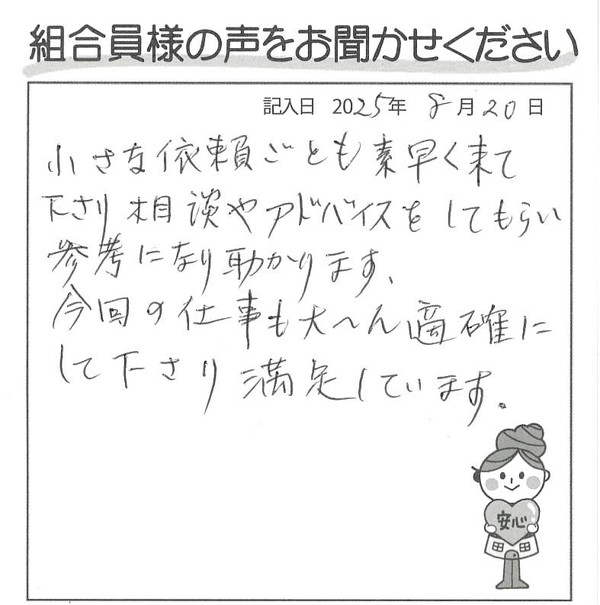 組合員様の声をお聞かせください
記入日 2025年 8月20日
小さな依頼ごとも素早く来て
下さり 相談やアドバイスをしてもらい
参考になり助かります、
今回の仕事も大へん適確に
して下さり 満足しています。
安心